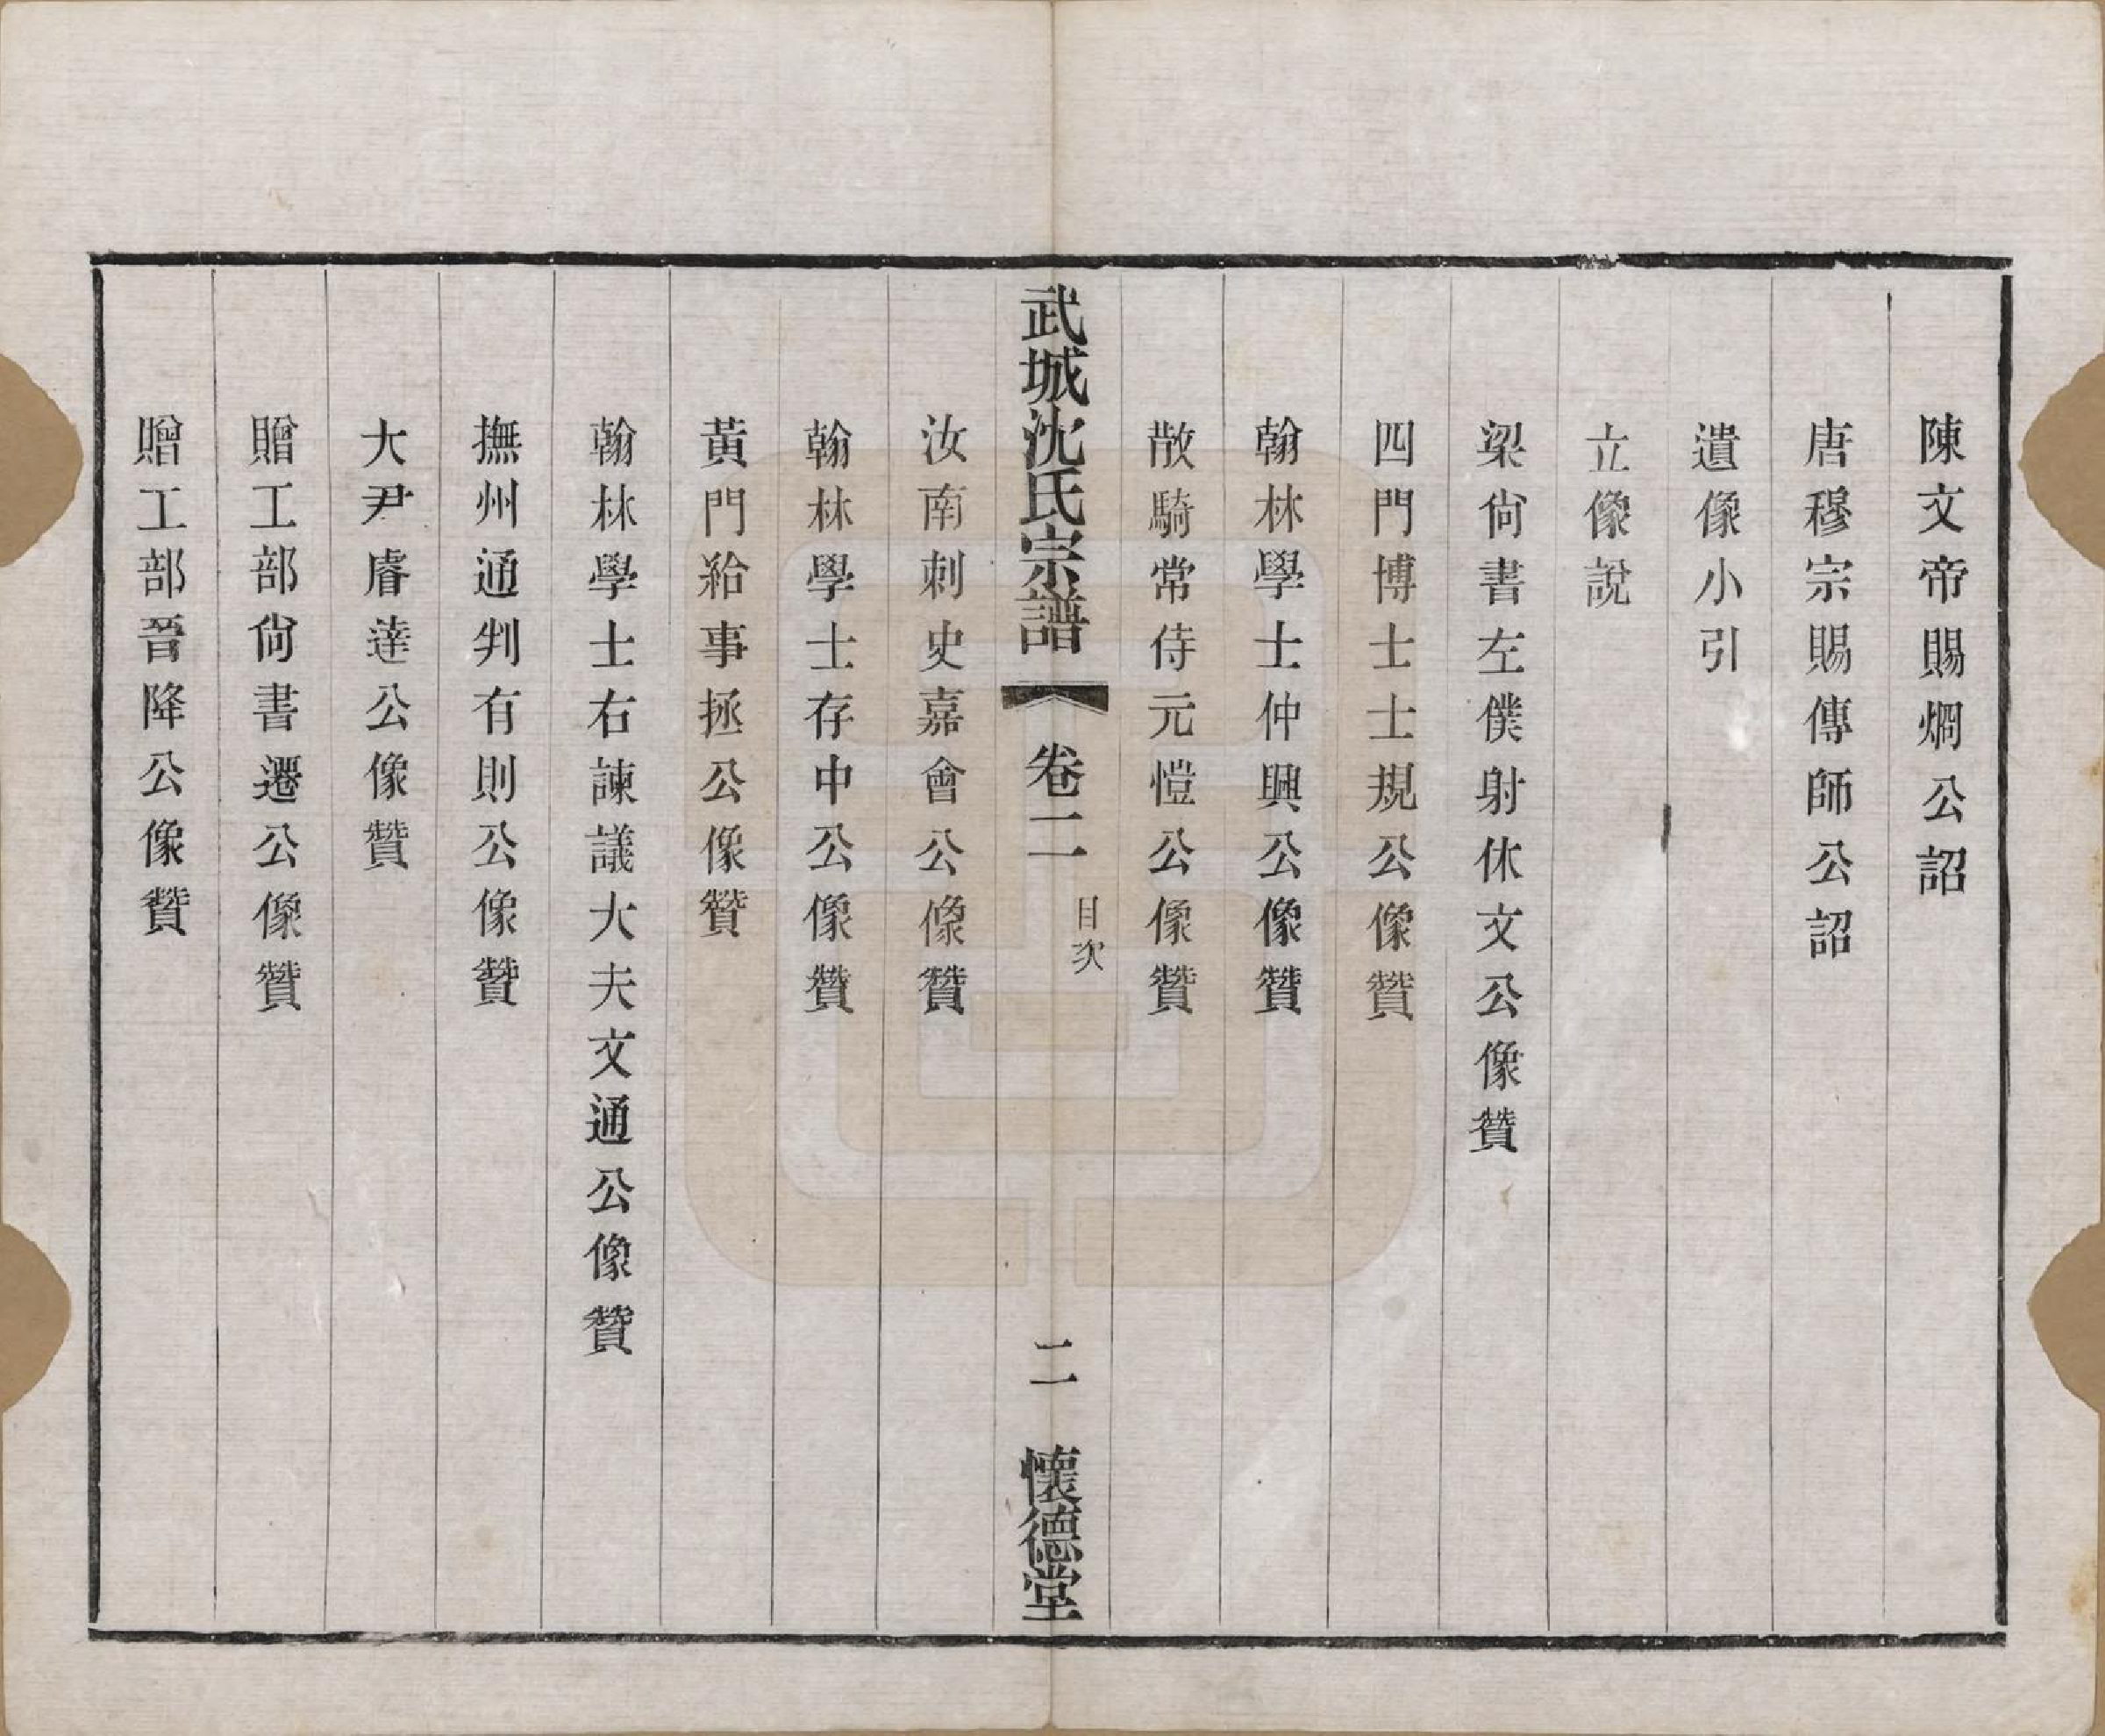 陳文帝賜烱公詔
唐穆宗賜傳師公詔
遺像小引
立像說
梁尙書左僕射休文公像贊
四門博士士規公像贊
翰林學士仲興公像贊
散騎常侍元愷公像贊
武城沈氏宗譜 卷二 目次 二 懷德堂
汝南刺史嘉會公像贊
翰林學士存中公像贊
黃門給事拯公像贊
翰林學士右諫議大夫文通公像贊
撫州通判有則公像贊
大尹睿達公像贊
贈工部尙書遷公像贊
贈工部晉降公像贊